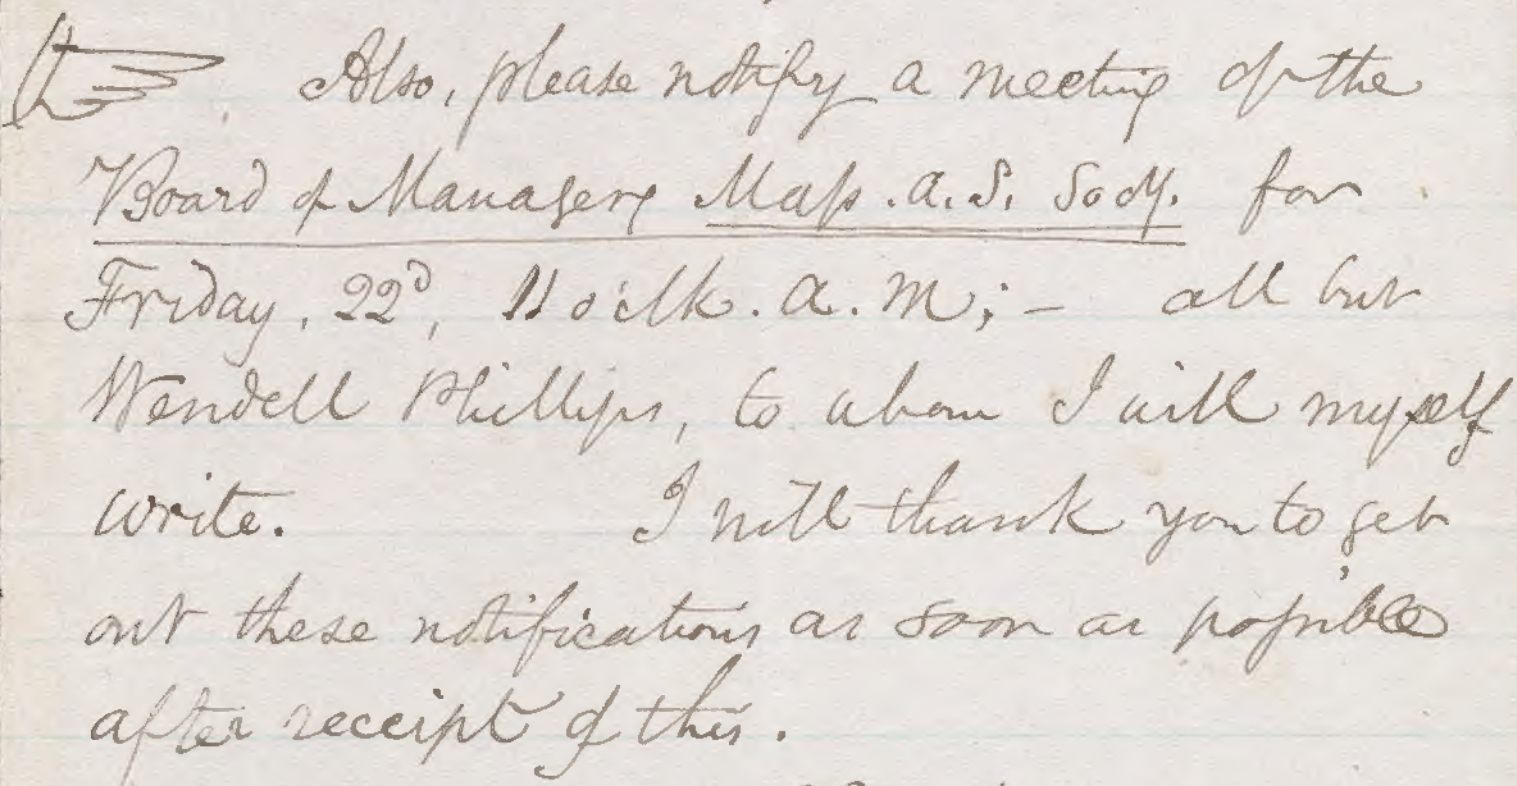 ☞ Also, please notify a meeting of the
Board of Managers Mass. A. S. Socy. for
Friday, 22d, 11 o'clk. A. M; – all but
Wendell Phillips, to whom I will myself
write. I will thank you to get
out these notifications as soon as possible
after receipt of this.